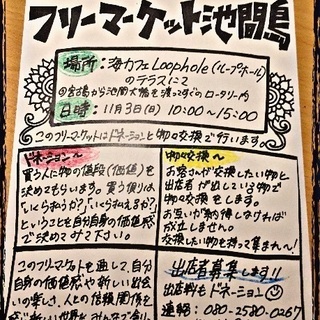 フリーマーケット池間島
場所：海カフェ Loophole(ループホール)
のテラスにて
宮古島から池間大橋を渡ってすぐのロータリー内
日時：11月3日(日) 10:00〜15:00
このフリーマーケットはドネーションと物々交換で行います。
ドネーション〜
買う人に物の値段(価値)を
決めてもらいます。買う側は
「いくら払うか?」「いくら払えるか?」
ということを自分自身の価値感
で決めてみて下さい。
物々交換〜
お客さんが交換したい物と
出店者が出している物で
物々交換をします。
お互いが納得しなければ
成立しません。
交換したい物を持って集まれ〜!
このフリーマーケットを通して、自分
自身の価値感や新しい出会
いの楽しさ、人との信頼関係を
感じ新しい世界をみんなで創り
出店者募集します!!
出店料もドネーション
連絡：080-2580-0267